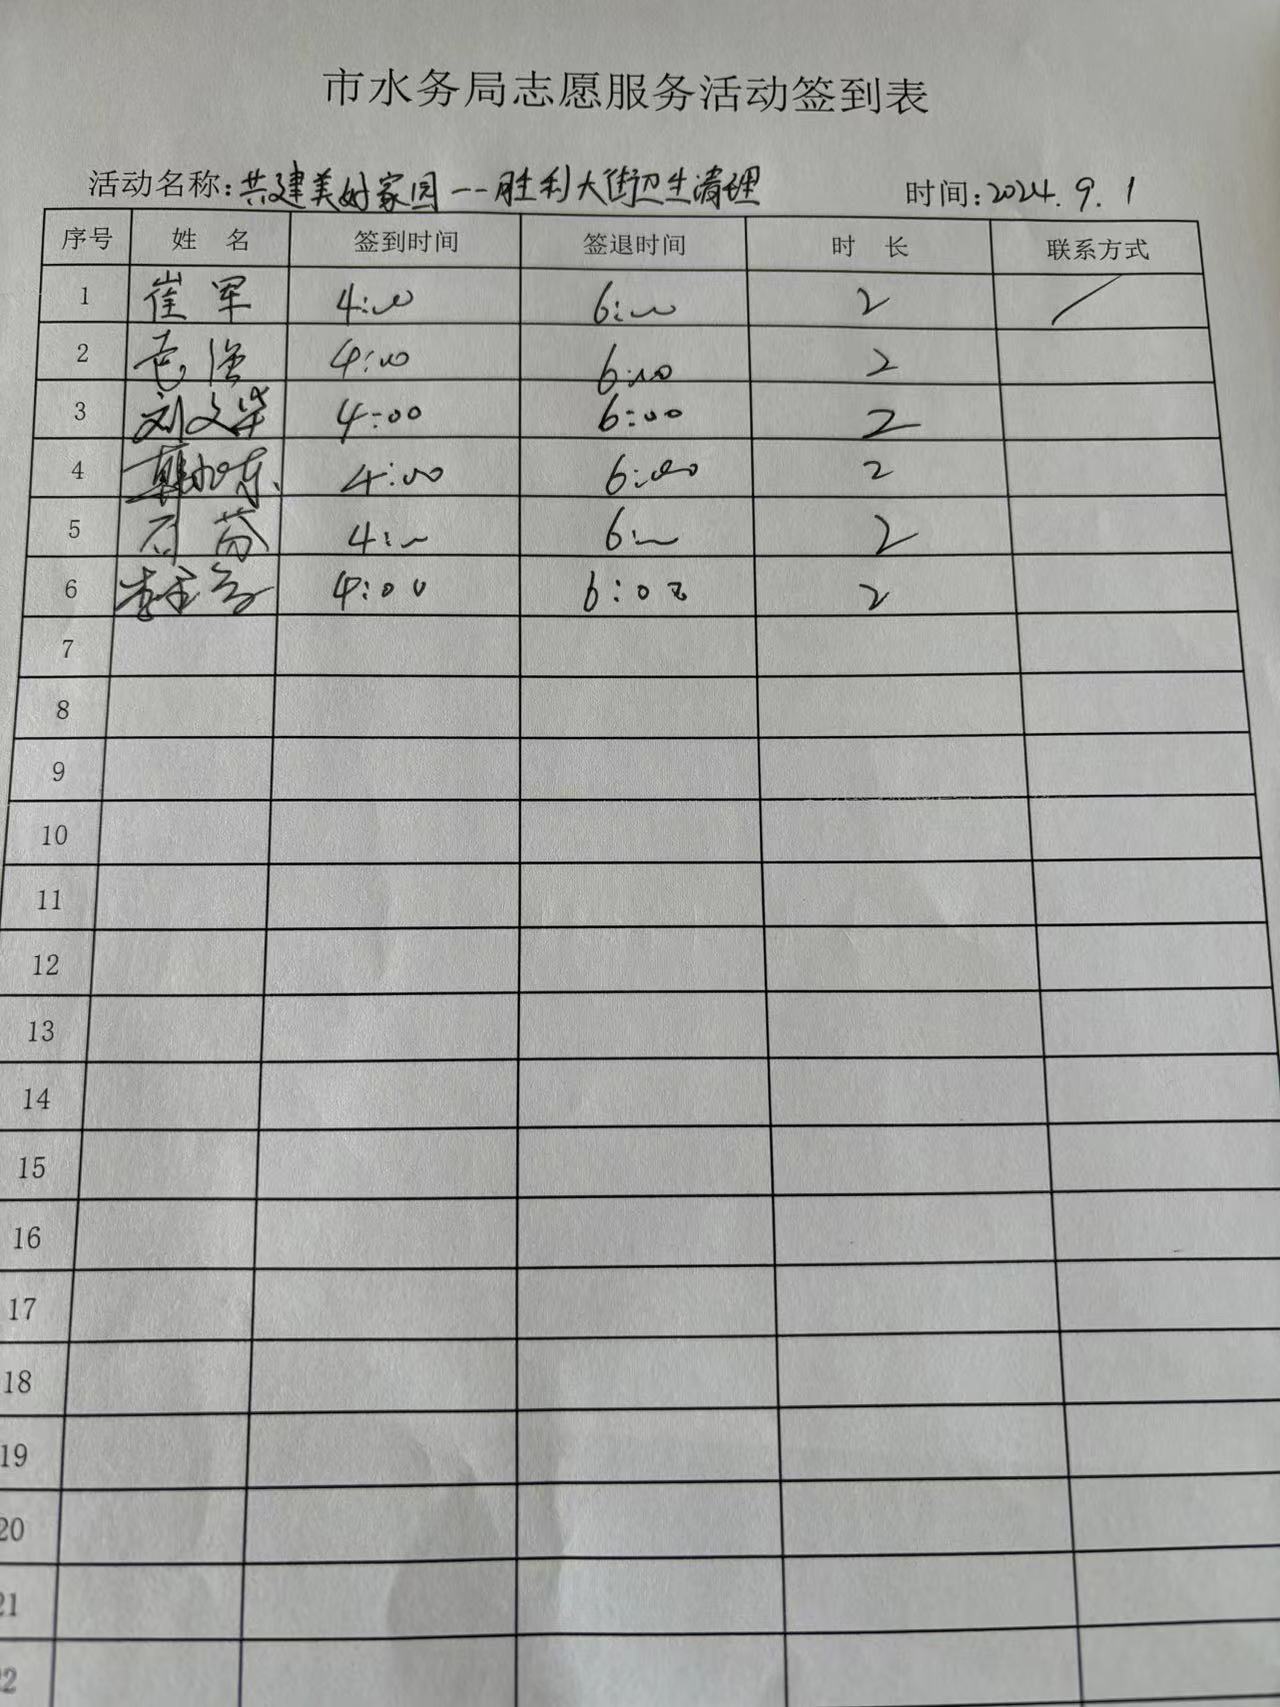 市水务局志愿服务活动签到表
活动名称:共建美好家园--胜利大街卫生清理 时间:2024.9.1
序号 姓名 签到时间 签退时间 时长 联系方式
1 崔军 4:00 6:00 2 /
2 4:00 6:00 2
3 刘文华 4:00 6:00 2
4 4:00 6:00 2
5 石芬 4:00 6:00 2
6 4:00 6:00 2
7
8
9
10
11
12
13
14
15
16
17
18
19
20
21
22